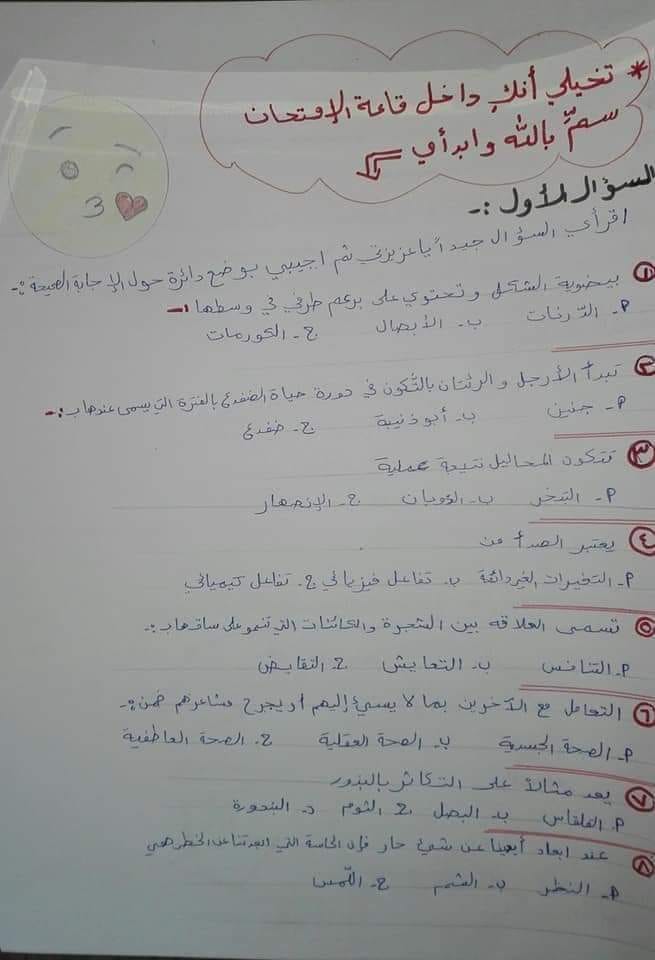 * تخيلي أنكِ داخل قاعة الإمتحان
سمِّ بالله وابدأي
السؤال الأول :-
اقرأي السؤال جيداً يا عزيزتي ثم اجيبي بوضع دائرة حول الإجابة الصحيحة :-
١ بيضوية الشكل وتحتوي على برعم طرفي في وسطها :-
أ- الدرنات ب- الأبصال ج- الكورمات
٢ تبدأ الأرجل و الرئتان بالتكون في دورة حياة الضفدع بالفترة التي يسمى عندها ب :-
أ- جنين ب- أبو ذنيبة ج- ضفدع
٣ تتكون المحاليل نتيجة عملية
أ- التبخر ب- الذوبان ج- الإنصهار
٤ يعتبر الصدأ من
أ- التغيرات الغير دائمة ب- تفاعل فيزيائي ج- تفاعل كيميائي
٥ تسمى العلاقه بين الشجرة والكائنات التي تنمو على ساقها ب :-
أ- التنافس ب- التعايش ج- التقايض
٦ التعامل مع الآخرين بما لا يسيئ إليهم أو يجرح مشاعرهم ضمن :-
أ- الصحة الجسدية ب- الصحة العقلية ج- الصحة العاطفية
٧ يعد مثالاً على التكاثر بالبذور
أ- القلقاس ب- البصل ج- الثوم د- البندورة
٨ عند ابعاد أيدينا عن شيئ حار فإن الحاسة التي ابعدتنا عن الخطر هي
أ- النظر ب- الشم ج- اللمس